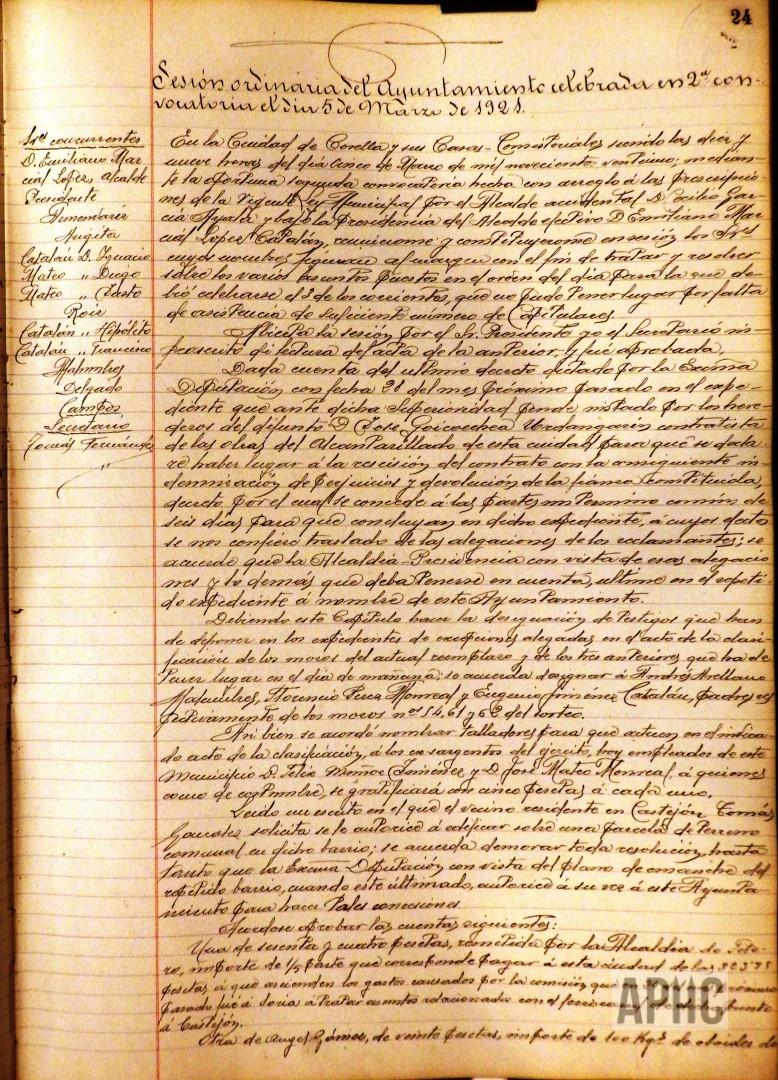 24
Sesión ordinaria del Ayuntamiento celebrada en 2ª con-
vocatoria el día 5 de Marzo de 1921.
Sres concurrentes
D. Emiliano Mar-
cial Lopez Alcalde
Presidente
Virgita
Catalán D. Ignacio
Mateo " Diego
Mateo " Casto
Roic
Catalán " Hipólito
Catalán " Francisco
Malumbres
Delgado
Campos
Secretario
Tomás Fernández
En la Ciudad de Corella y sus Casas-Consistoriales siendo las diez y
nueve horas del día cinco de Marzo de mil novecientos veintiuno; median-
te la oportuna segunda convocatoria hecha con arreglo á las prescripcio-
nes de la vigente Ley Municipal por el Alcalde accidental D. Cecilio Gar-
cía Ayala y bajo la Presidencia del Alcalde efectivo D. Emiliano Mar-
cial Lopez Catalán, reunieronse y constituyeronse en sesión los Sres
cuyos nombres figuran al margen con el fin de tratar y resolver
sobre los varios asuntos puestos en el orden del día para la que de-
bió celebrarse el 3 de los corrientes, que no pudo tener lugar por falta
de asistencia de suficiente número de Capitulares.
Abierta la sesión por el Sr. Presidente yo el Secretario in-
frascrito di lectura del acta de la anterior, y fué aprobada.
Dada cuenta del ultimo decreto dictado por la Excma
Diputación con fecha 28 del mes próximo pasado en el expe-
diente que ante dicha Superioridad pende instado por los here-
deros del difunto D. José Goicoechea Urdangarin contratista
de las obras del Alcantarillado de esta ciudad para que se decla-
re haber lugar á la rescisión del contrato con la consiguiente in-
demnización de perjuicios y devolución de la fianza constituida,
decreto por el cual se concede á las partes un termino común de
seis días para que concluyan en dicho expediente, á cuyo efecto
se nos confiere traslado de las alegaciones de los reclamantes; se
acuerda que la Alcaldía-Presidencia con vista de esas alegacio-
nes y lo demás que deba tenerse en cuenta, ultime en el repeti-
do expediente á nombre de este Ayuntamiento.
Debiendo este Capítulo hacer la designación de testigos que han
de deponer en los expedientes de excepciones alegadas en el acto de la clasi-
ficación de los mozos del actual reemplazo y de los tres anteriores que ha de
tener lugar en el día de mañana; se acuerda designar á Andrés Arellano
Malumbres, Florencio Perez Monreal y Eugenio Jiménez Catalán, padres res-
pectivamente de los mozos nos 54, 61 y 62 del sorteo.
Asi bien se acordó nombrar talladores para que actuen en el indica-
do acto de la clasificación, á los ex sargentos del ejército, hoy empleados de este
Municipio D. Felix Muñoz Jiménez y D. José Mateo Monreal á quienes
como de costumbre, se gratificará con cinco pesetas á cada uno.
Leido un escrito en el que el vecino residente en Castejón Tomás
Gonzalez solicita se le autorice á edificar sobre una parcela de terreno
comunal en dicho barrio; se acuerda demorar toda resolución, hasta
tanto que la Excma Diputación con vista del plano de ensanche del
repetido barrio, cuando este últimado, autorice á su vez á este Ayunta-
miento para hacer tales concesiones.
Acordose aprobar las cuentas siguientes:
Una de sesenta y cuatro pesetas, remitida por la Alcaldía de Fite-
ro, importe de 1/5 parte que corresponde pagar á esta ciudad de las
pesetas á que ascienden los gastos causados por la comisión que
pasado fué á Soria á tratar asuntos relacionados con el ferro
á Castejón.
Otra de Angel Gómez, de veinte pesetas, importe de 100 Kgs. de de
APHC